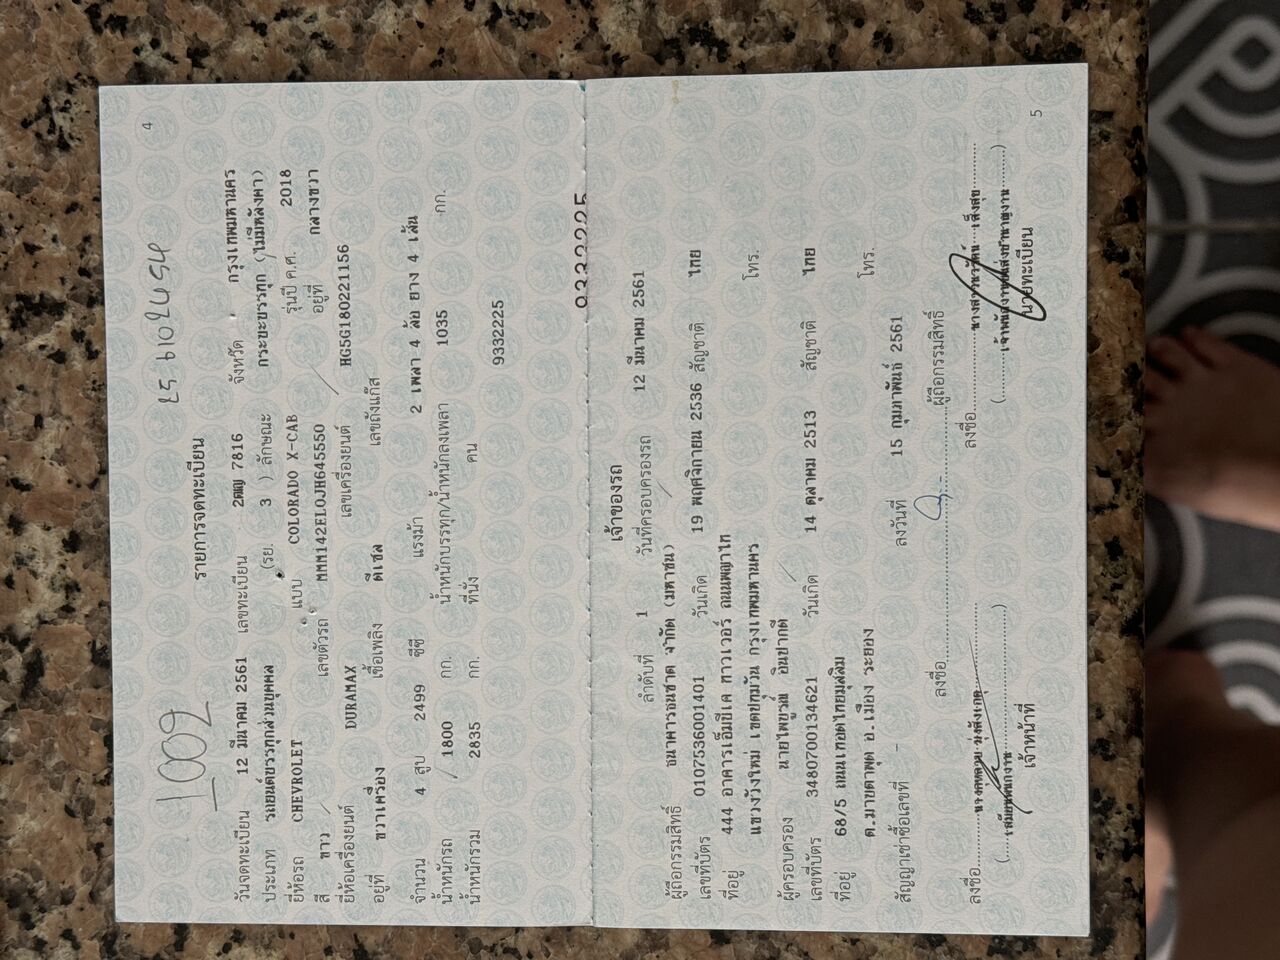 4
1002
25 6102454
รายการจดทะเบียน
วันจดทะเบียน 12 มีนาคม 2561 เลขทะเบียน 2ฒญ 7816 จังหวัด กรุงเทพมหานคร
ประเภท รถยนต์บรรทุกส่วนบุคคล (รย. 3 ) ลักษณะ กระบะบรรทุก (ไม่มีหลังคา)
ยี่ห้อรถ CHEVROLET แบบ COLORADO X-CAB รุ่นปี ค.ศ. 2018
สี ขาว เลขตัวรถ MMM142ELOJH645550 อยู่ที่ กลางขวา
ยี่ห้อเครื่องยนต์ DURAMAX เลขเครื่องยนต์ HG5G180221156
อยู่ที่ ขวาเครื่อง เชื้อเพลิง ดีเซล เลขถังแก๊ส
จำนวน 4 สูบ 2499 ซีซี แรงม้า 2 เพลา 4 ล้อ ยาง 4 เส้น
น้ำหนักรถ 1800 กก. น้ำหนักบรรทุก/น้ำหนักลงเพลา 1035 กก.
น้ำหนักรวม 2835 กก. ที่นั่ง คน
9332225
9332225
เจ้าของรถ
ลำดับที่ 1 วันที่ครอบครองรถ 12 มีนาคม 2561
ผู้ถือกรรมสิทธิ์ ธนาคารธนชาต จำกัด (มหาชน)
เลขที่บัตร 0107536001401 วันเกิด 19 พฤศจิกายน 2536 สัญชาติ ไทย
ที่อยู่ 444 อาคารเอ็มบีเค ทาวเวอร์ ถนนพญาไท
แขวงวังใหม่ เขตปทุมวัน กรุงเทพมหานคร โทร.
ผู้ครอบครอง นายไพบูรณ์ อินปากดี
เลขที่บัตร 3480700134621 วันเกิด 14 ตุลาคม 2513 สัญชาติ ไทย
ที่อยู่ 68/5 ถนนเทอดไทยมุสลิม
ต.มาบตาพุด อ.เมือง ระยอง โทร.
สัญญาเช่าซื้อเลขที่ - ลงวันที่ 15 กุมภาพันธ์ 2561
ลงชื่อ ผู้ถือกรรมสิทธิ์
ลงชื่อ ลงชื่อ
( ) ( )
เจ้าหน้าที่ นายทะเบียน
5